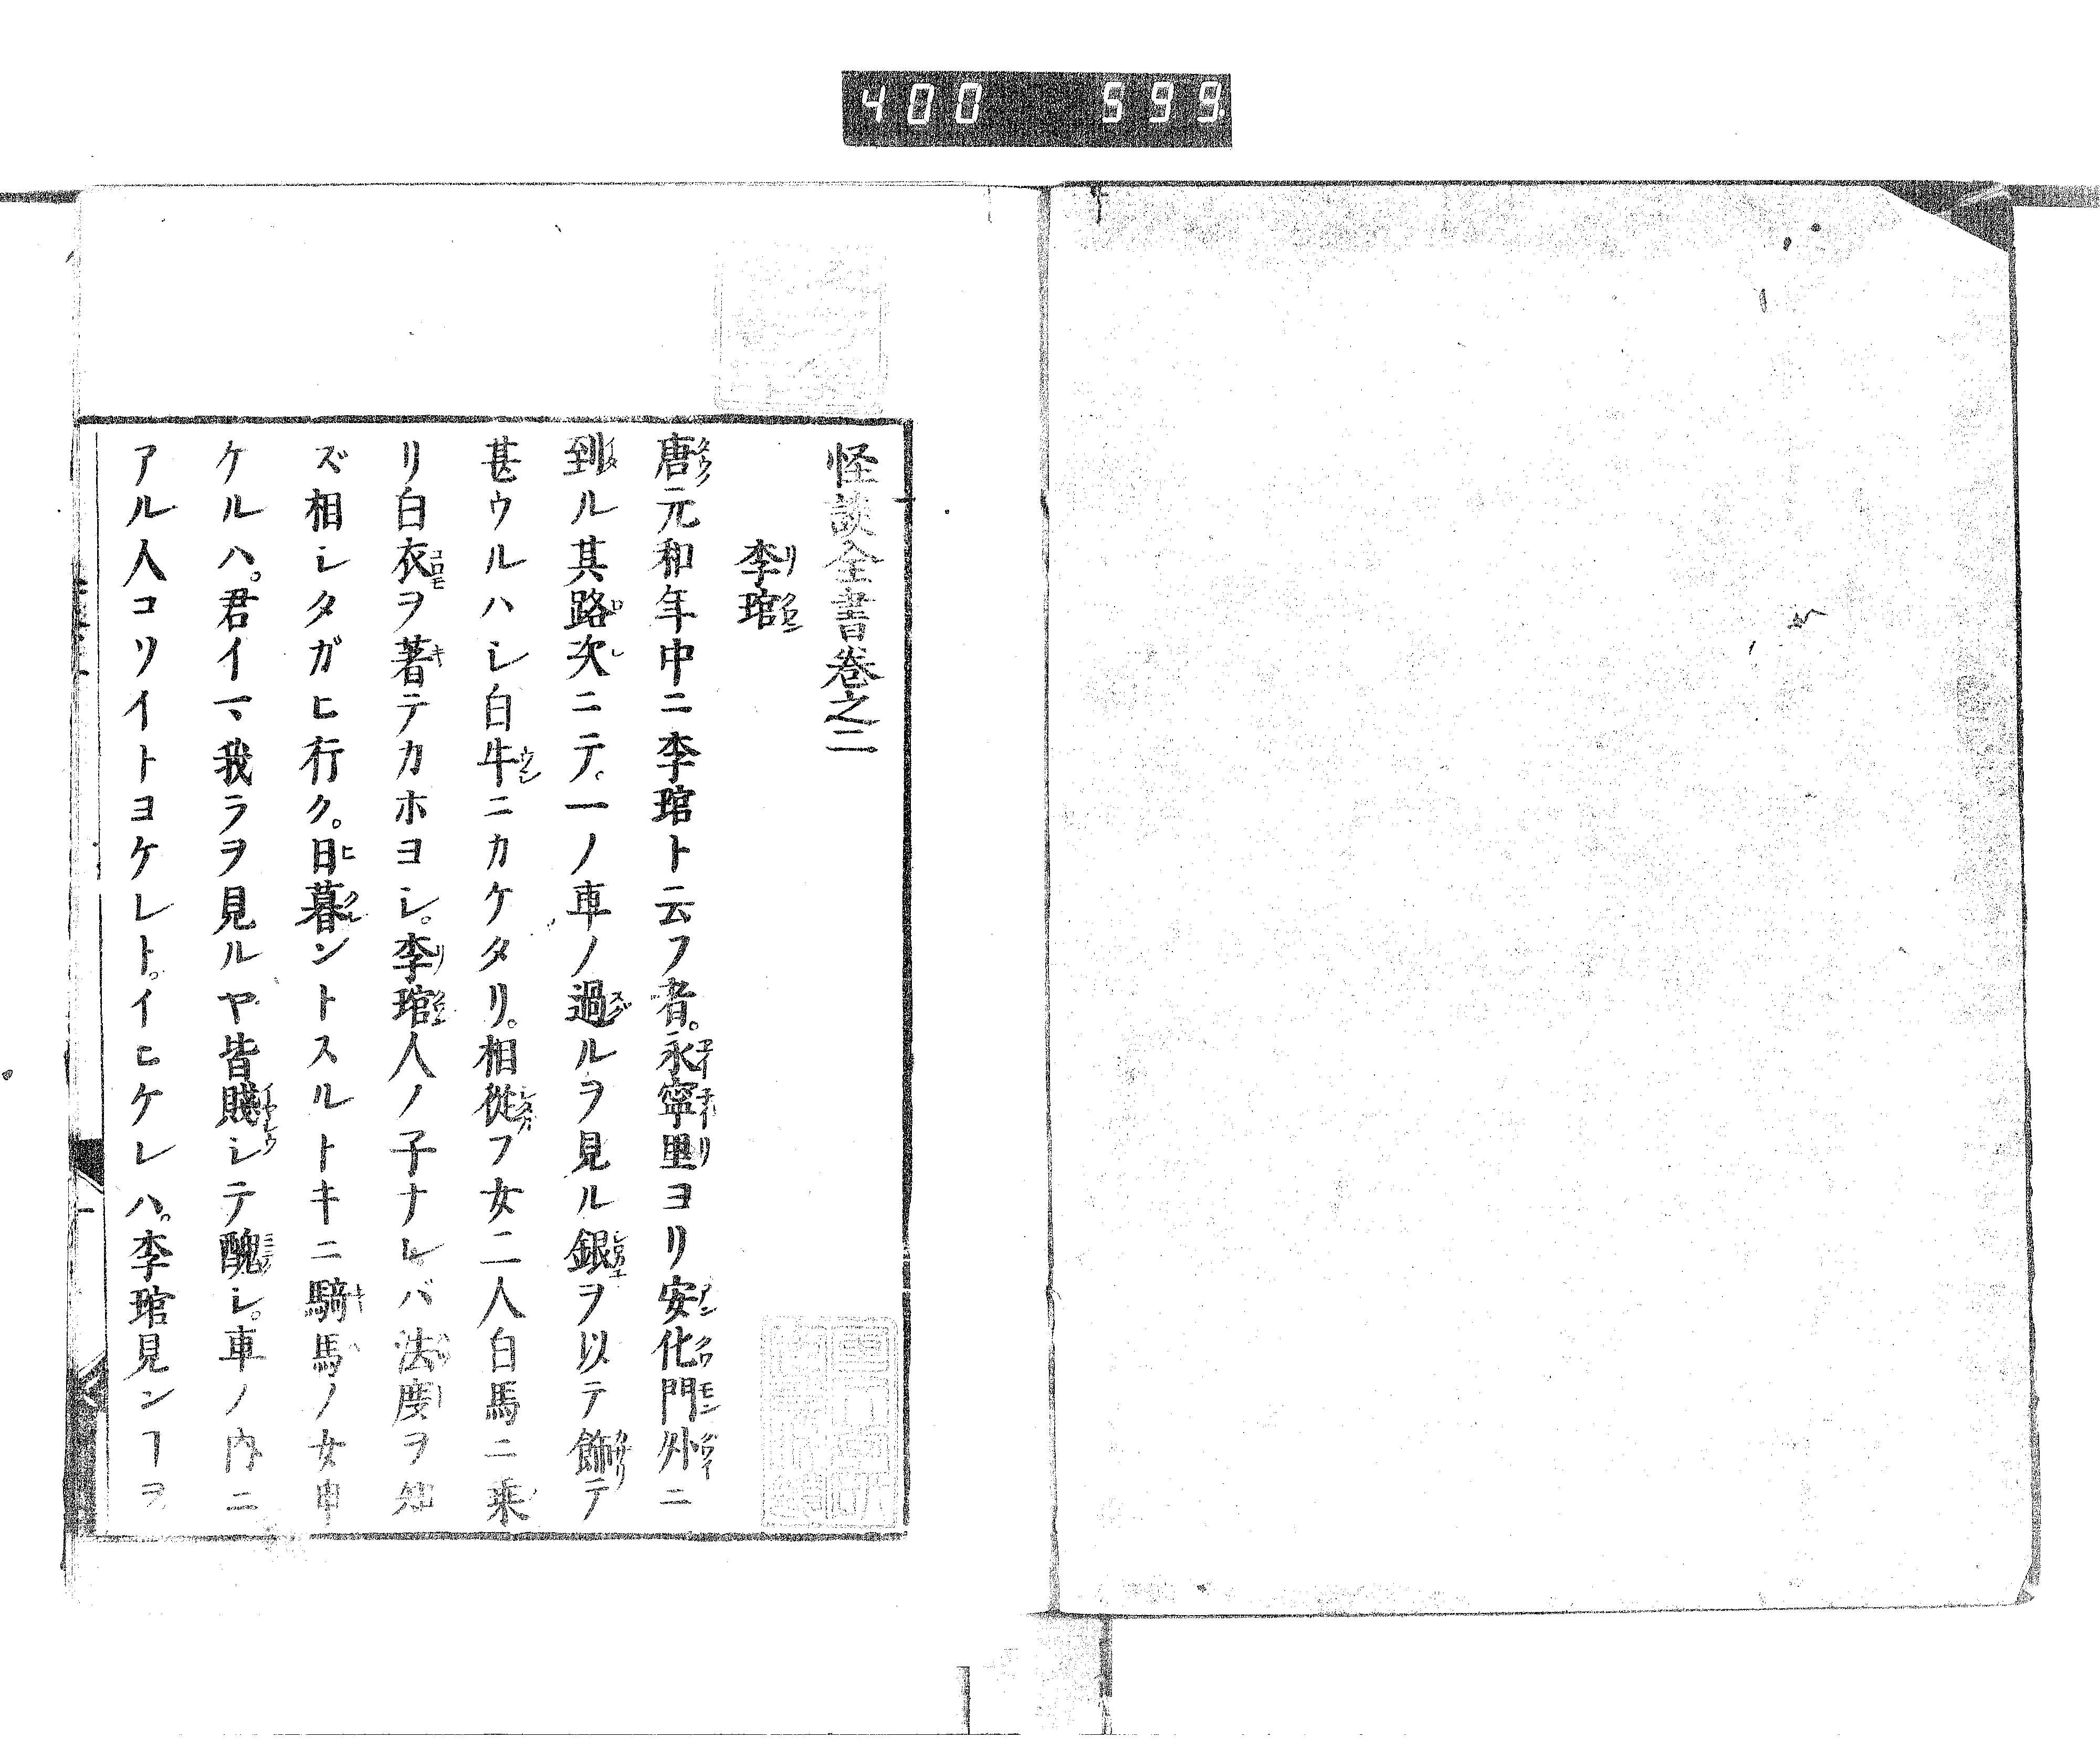 400 599
怪談全書巻之二
李琯
唐元和年中ニ李琯ト云フ者。永寧里ヨリ安化門外ニ
到ル其路次ニテ。一ノ車ノ過ルヲ見ル銀ヲ以テ飾テ
甚ウルハシ白牛ニカケタリ。相從フ女二人白馬ニ乘
リ白衣ヲ著テカホヨシ。李琯人ノ子ナレバ法度ヲ知
ズ相シタガヒ行ク。日暮ントスルトキニ騎馬ノ女申
ケルハ。君イマ我ラヲ見ルヤ皆賤シテ醜シ。車ノ内ニ
アル人コソイトヨケレト。イヒケレハ。李琯見ンヿヲ